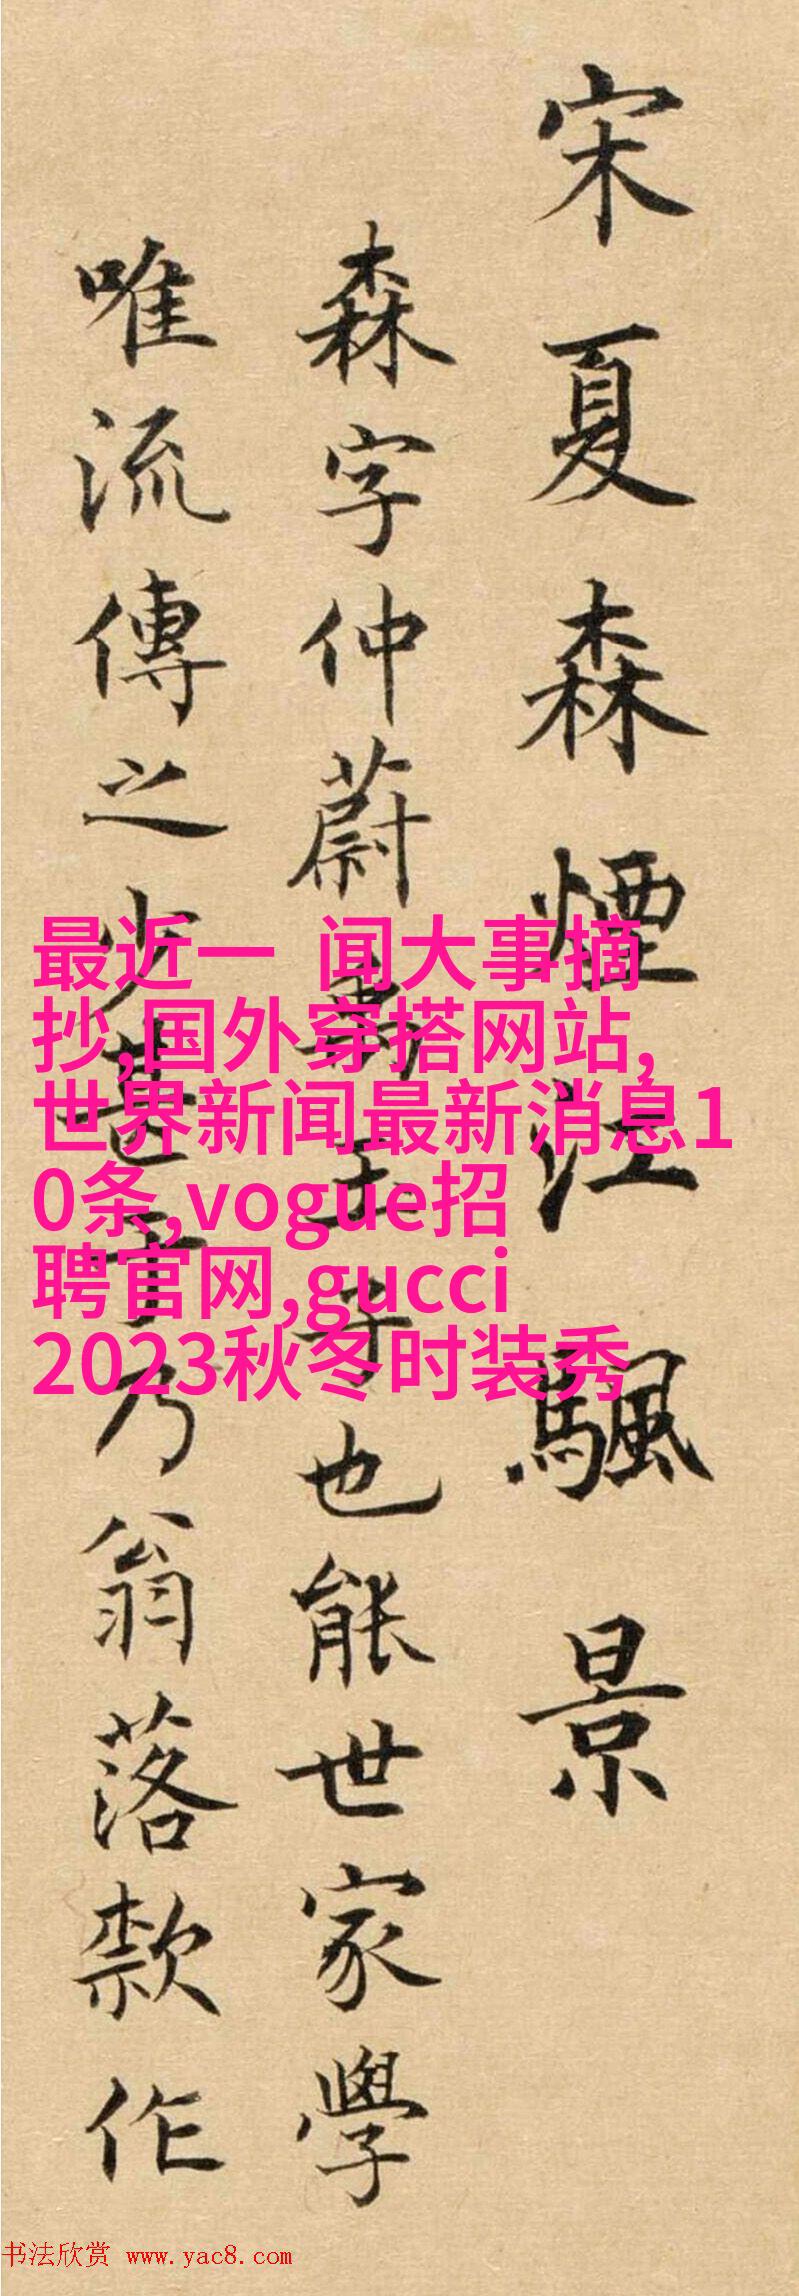 宋夏森煙江颿景
森字仲蔚夏圭子也能世家學
唯流傳之少甚于乃翁落款作
最近一 闻大事摘
抄,国外穿搭网站,
世界新闻最新消息1
0条,vogue招
聘官网,gucci
2023秋冬时装秀
书法欣赏 www.yac8.com